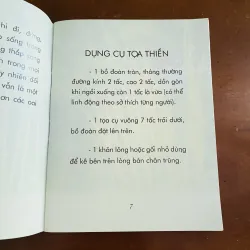 hi đi, đứng,
sống trong
thấp
trong mọi
y nhiên đối
vẫn là một
ơn các oai
DỤNG CỤ TỌA THIỀN
- 1 bồ đoàn tròn, thông thường
đường kính 2 tấc, cao 2 tấc, dồn gòn
khi ngồi xuống còn 1 tấc là vừa (có thể
linh động theo sở thích từng người).
- 1 tọa cụ vuông 7 tấc trải dưới,
bồ đoàn đặt lên trên.
- 1 khăn lông hoặc gối nhỏ dùng
để kê bên trên lòng bàn chân trùng.
7